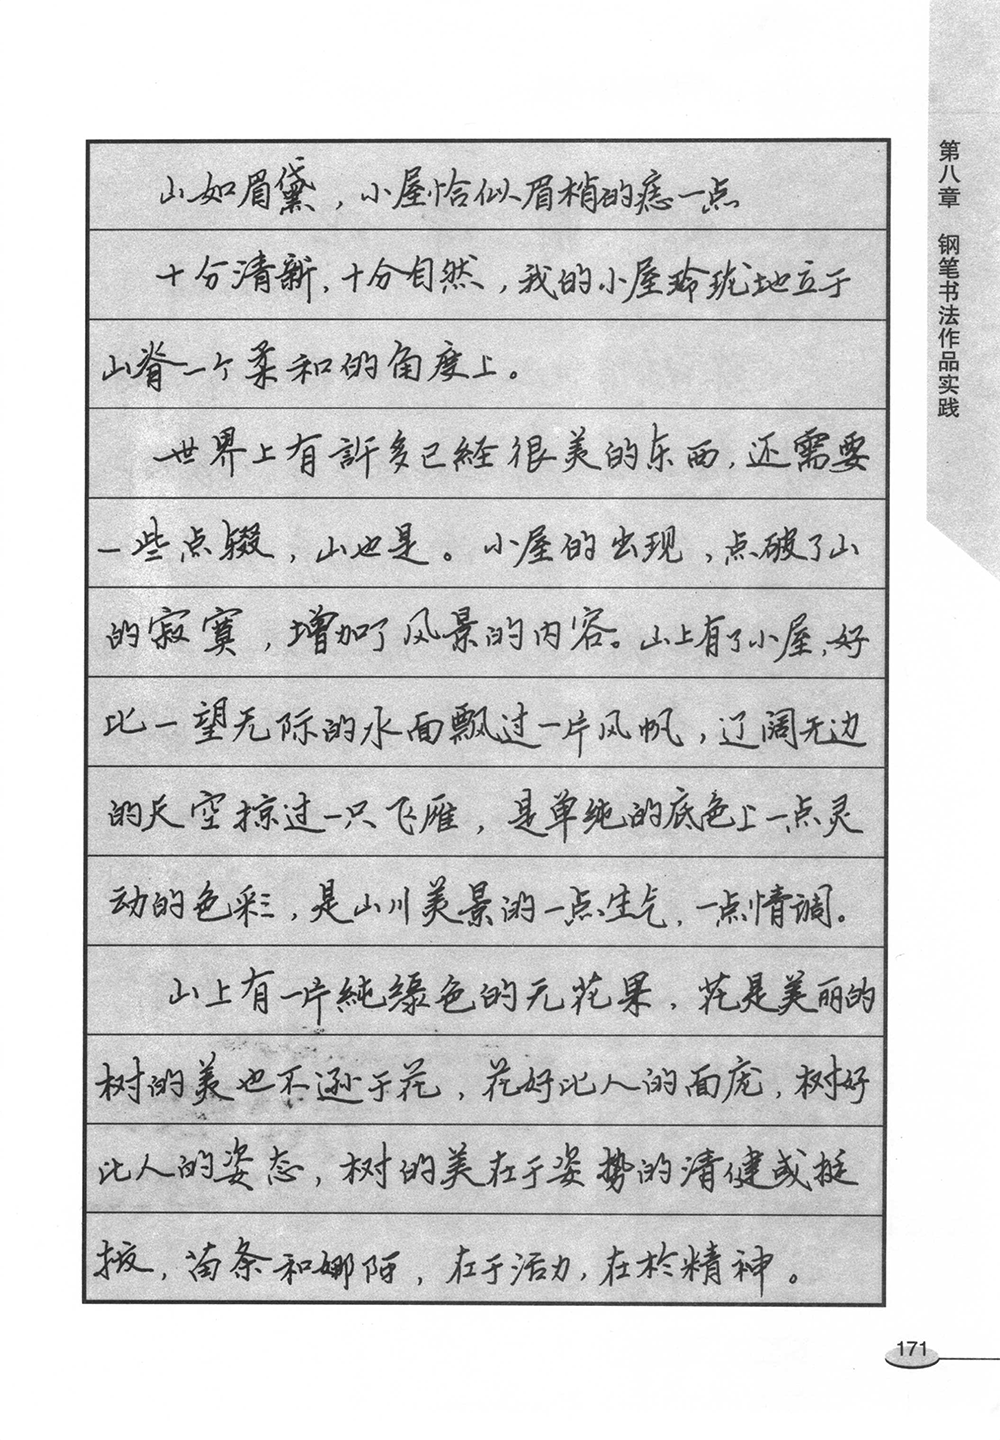 山如眉黛，小屋恰似眉梢的痣一点
十分清新，十分自然，我的小屋玲珑地立于
山脊一个柔和的角度上。
世界上有許多已経很美的东西，还需要
一些点缀，山也是。小屋的出现，点破了山
的寂寞，增加了风景的内容。山上有了小屋，好
比一望无际的水面飘过一片风帆，辽阔无边
的天空掠过一只飞雁，是单纯的底色上一点灵
动的色彩，是山川美景的一点生气，一点情调。
山上有一片純绿色的无花果，花是美丽的
树的美也不逊于花，花好比人的面庞，树好
比人的姿态，树的美在于姿势的清健或挺
拔，苗条和娜阿，在于活力，在於精神。
第八章 钢笔书法作品实践
171